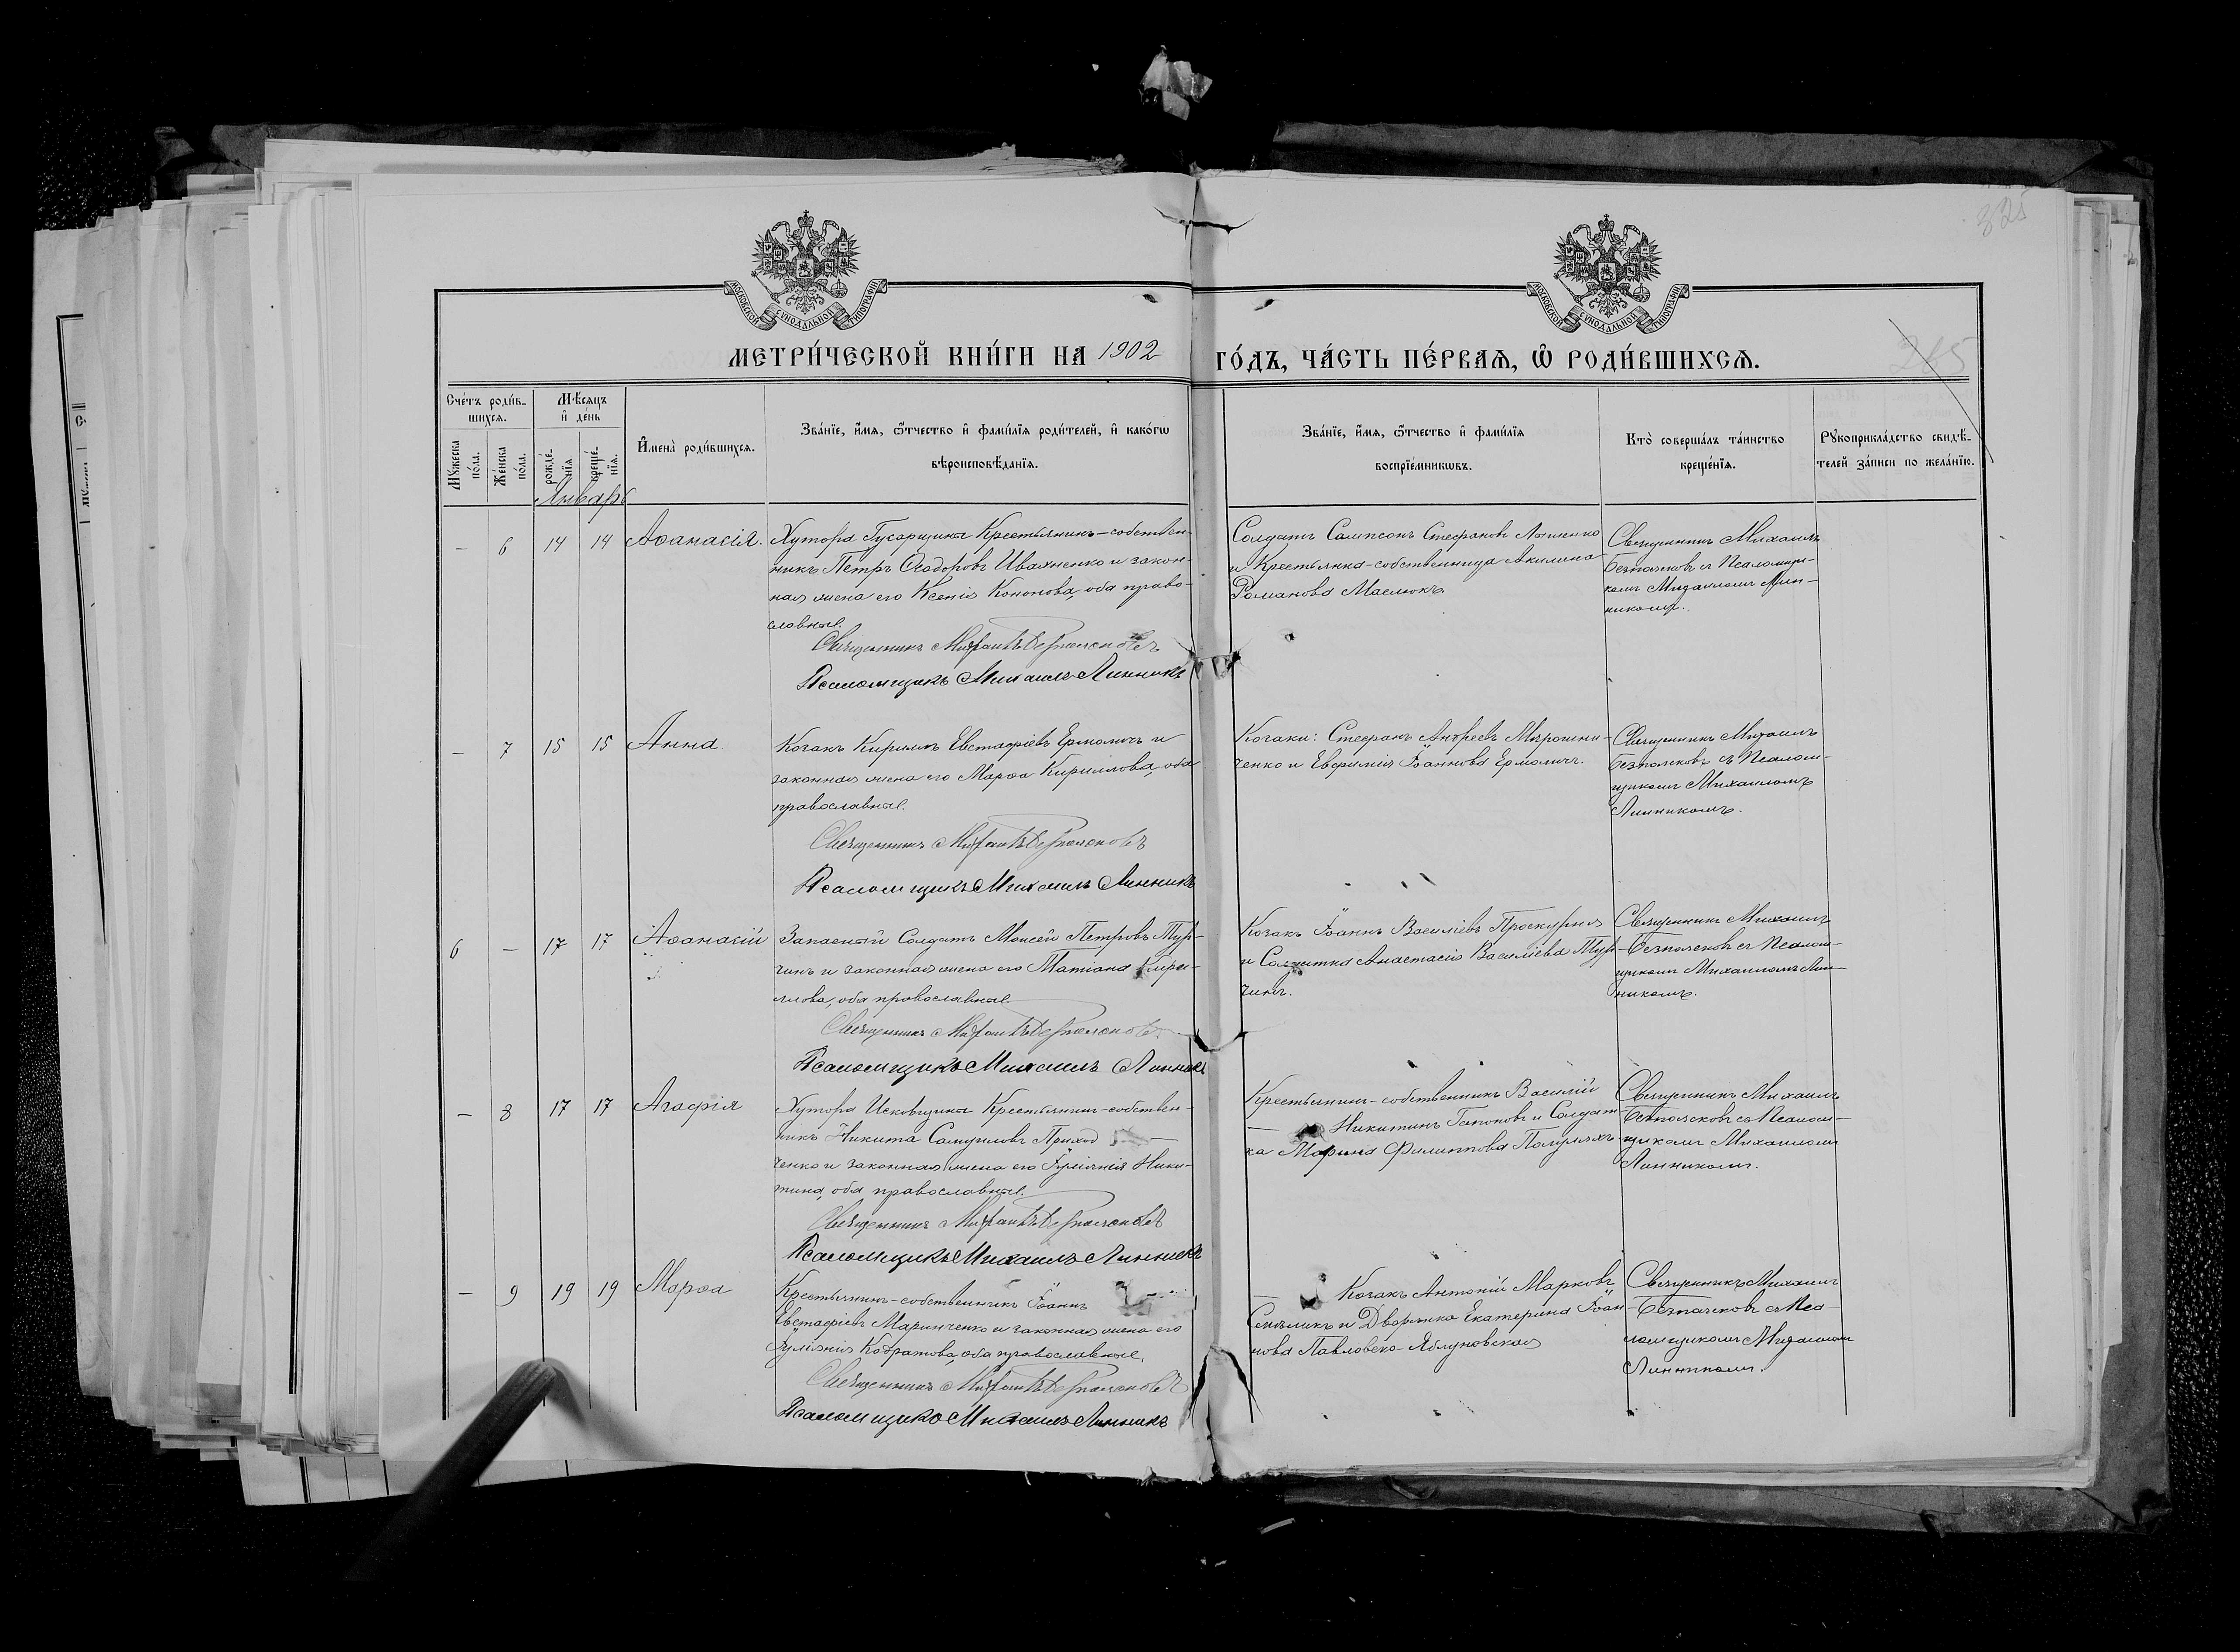 325
МОСКОВСКОЙ СѴНОДАЛЬНОЙ ТИПОГРАФІИ
МОСКОВСКОЙ СѴНОДАЛЬНОЙ ТИПОГРАФІИ
МЕТРИ́ЧЕСКОЙ КНИ́ГИ НА 1902 ГО́ДЪ, ЧА́СТЬ ПЕ́РВАѦ, Ѡ РОДИ́ВШИХСѦ.
265
Сче́тъ роди́в-
шихсѧ.
Мѣ́сѧцъ
и҆ де́нь
Мꙋ́жеска
по́ла.
Же́нска
по́ла.
рожде́-
нїѧ
креще́-
нїѧ.
Январь
И҆мена̀ роди́вшихсѧ.
Зва́нїе, и҆́мѧ, ѻ҆́тчество и҆ фами́лїѧ роди́телей, и҆ како́гѡ
вѣроисповѣ́данїѧ.
Зва́нїе, и҆́мѧ, ѻ҆́тчество и҆ фами́лїѧ
воспрїе́мникѡвъ.
Кто̀ соверша́лъ та́инство
креще́нїѧ.
Рꙋкоприкла́дство свидѣ́-
телей за́писи по жела́нїю.
- 6 14 14 Аѳанасія.
Хутора Гусарщина Крестьянинъ-собствен-
никъ Петръ Ѳеодоровъ Ивахненко и закон-
ная жена его Ксенія Кононова, оба право-
славные.
Священникъ Михаилъ
Псаломщикъ Михаилъ Линникъ
Солдатъ Сампсонъ Стефановъ
и Крестьянка-собственница Акилина
Романова Маслюкъ
Священникъ Михаилъ
съ Псаломщи-
комъ Михаиломъ Лин-
никомъ.
- 7 15 15 Анна.
Козакъ Кириллъ Евстафіевъ Ермоличъ и
законная жена его Марѳа Кириллова, оба
православные.
Священникъ Михаилъ
Псаломщикъ Михаилъ Линникъ
Козаки: Стефанъ Андреевъ Мирошни-
ченко и Евфимія Іоаннова Ермоличъ.
Священникъ Михаилъ
съ Псалом-
щикомъ Михаиломъ
Линникомъ.
6 - 17 17 Аѳанасій
Запасный Солдатъ Моисей Петровъ Тур-
чинъ и законная жена его Татіана Кирил-
лова, оба православные.
Священникъ Михаилъ
Псаломщикъ Михаилъ Линникъ
Козакъ Іоаннъ Василіевъ Проскурня
и Солдатка Анастасія Василіева Тур-
чинъ.
Священникъ Михаилъ
съ Псалом-
щикомъ Михаиломъ Лин-
никомъ.
- 8 17 17 Агафія
Хутора Крестьянинъ-собствен-
никъ Никита Самуиловъ Приход
ченко и законная жена его Іуліанія Ники-
тина, оба православные.
Священникъ Михаилъ
Псаломщикъ Михаилъ Линникъ
Крестьянинъ-собственникъ Василій
Никитинъ Гапоновъ и Солдат-
ка Марина Филиппова
Священникъ Михаилъ
съ Псалом-
щикомъ Михаиломъ
Линникомъ.
- 9 19 19 Марѳа
Крестьянинъ-собственникъ Іоаннъ
Евстафіевъ Маринченко и законная жена его
Іуліанія Кодратова, оба православные.
Священникъ Михаилъ
Псаломщикъ Михаилъ Линникъ
Козакъ Антоній Марковъ
и Дворянка Екатерина Іоан-
нова Павловско-Яблуновская
Священникъ Михаилъ
съ Пса-
ломщикомъ Михаиломъ
Линникомъ.